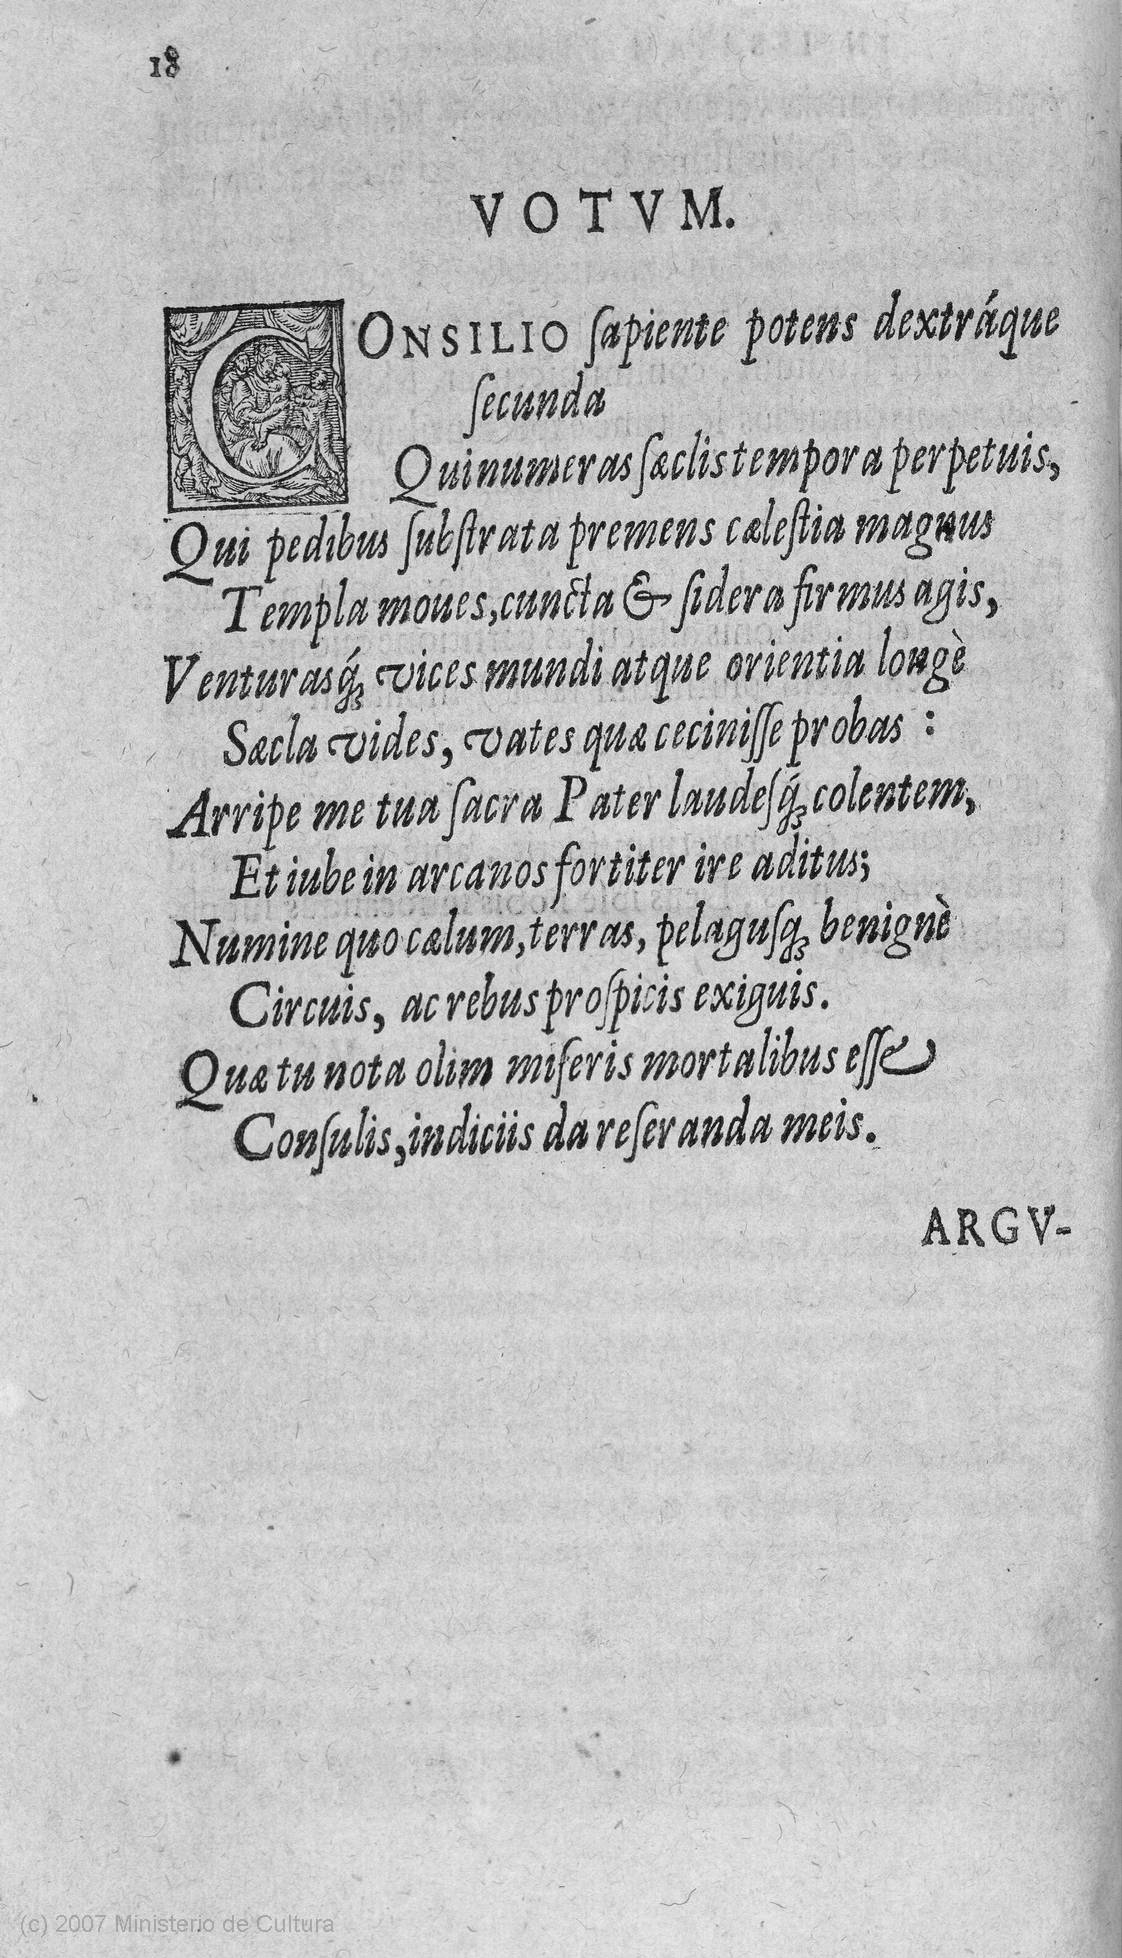 18
VOTVM.
CONSILIO ſapiente potens dextráque
ſecunda
Qui numeras ſæclis tempora perpetuis,
Qui pedibus ſubſtrata premens cæleſtia magnus
Templa moues, cuncta & ſidera firmus agis,
Venturasq́; vices mundi atque orientia longè
Sæcla vides, vates quæ ceciniſſe probas :
Arripe me tua ſacra Pater laudeſq́; colentem,
Et iube in arcanos fortiter ire aditus;
Numine quo cælum, terras, pelaguſq; benignè
Circuis, ac rebus proſpicis exiguis.
Quæ tu nota olim miſeris mortalibus eſſe
Conſulis, indiciis da reſeranda meis.
ARGV-
(c) 2007 Ministerio de Cultura